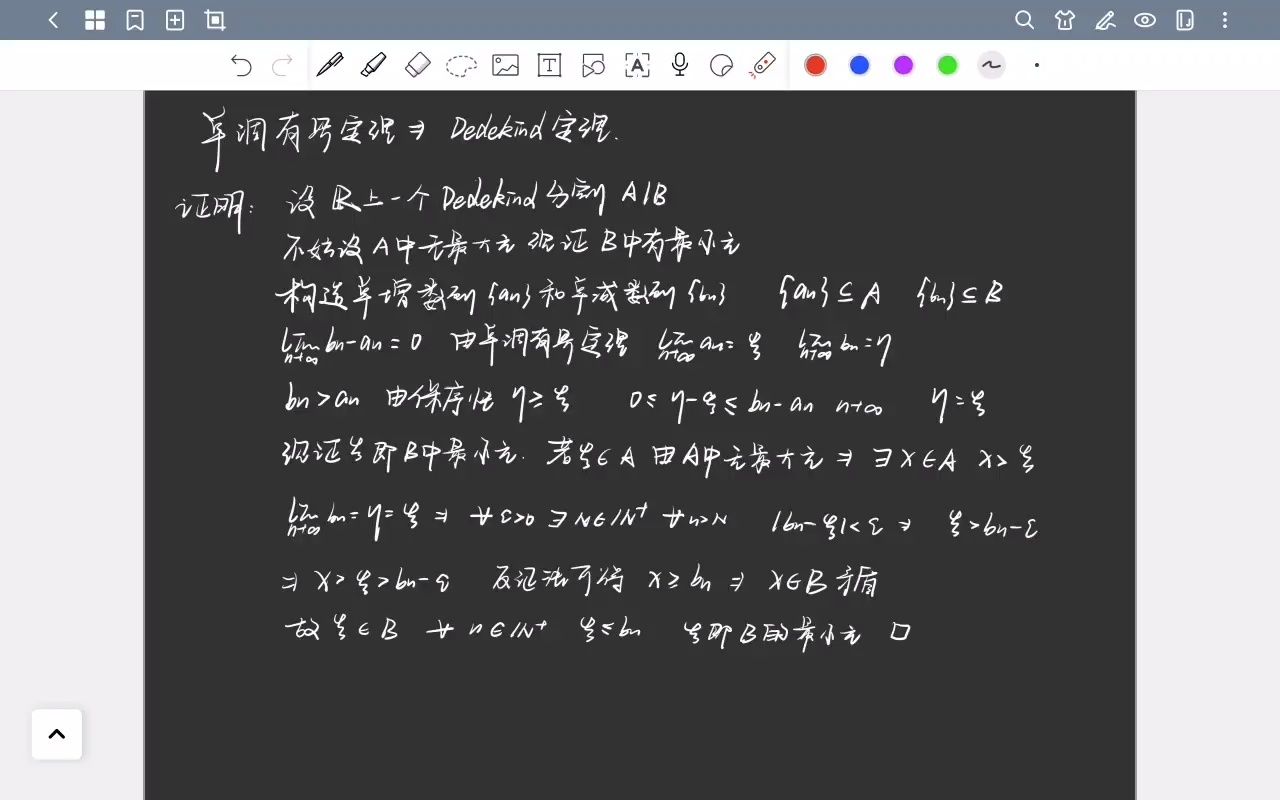 单调有界定理 ⇒ Dedekind定理.
证明: 设 ℝ上一个 Dedekind分割 A|B
不妨设 A中无最大元 现证 B中有最小元
构造单增数列{an}和单减数列{bn} {an}⊆A {bn}⊆B
lim n→∞ bn-an=0 由单调有界定理 lim n→∞ an=ξ lim n→∞ bn=η
bn>an 由保序性 η≥ξ 0≤η-ξ≤bn-an n→∞ η=ξ
现证ξ即B中最小元. 若ξ∈A 由A中无最大元 ⇒ ∃x∈A x>ξ
lim n→∞ bn=η=ξ ⇒ ∀ε>0 ∃N∈ℕ⁺ ∀n>N |bn-ξ|<ε ⇒ ξ>bn-ε
⇒ x>ξ>bn-ε 反证法可得 x≥bn ⇒ x∈B 矛盾
故ξ∈B ∀n∈ℕ⁺ ξ≤bn ξ即B的最小元 □